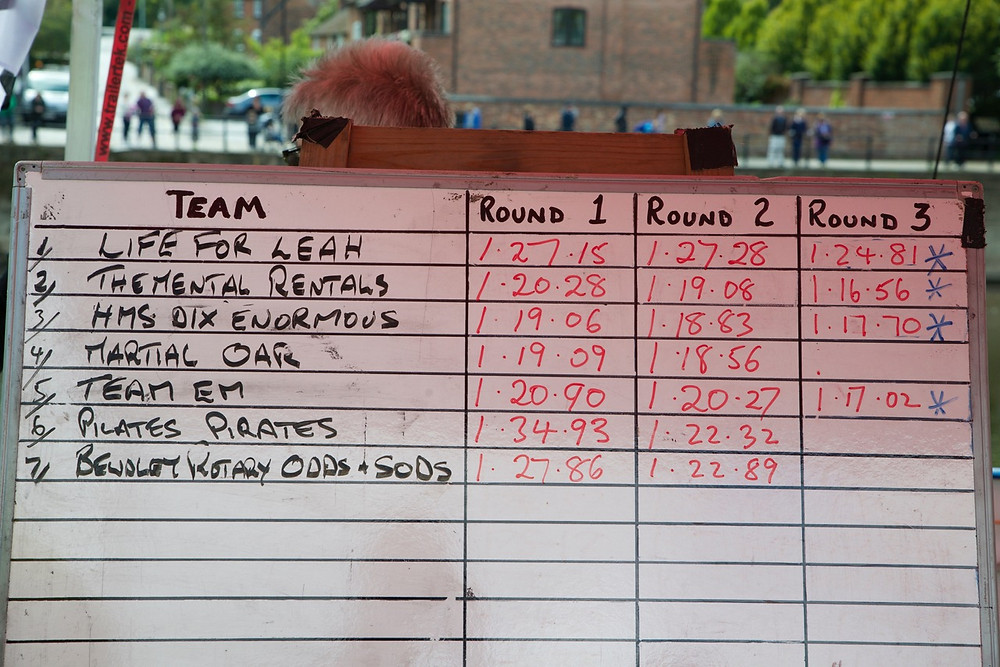 www.trailertek.com
TEAM ROUND 1 ROUND 2 ROUND 3
1, LIFE FOR LEAH 1.27.15 1.27.28 1.24.81 *
2, THEMENTAL RENTALS 1.20.28 1.19.08 1.16.56 *
3, HMS DIX ENORMOUS 1.19.06 1.18.83 1.17.70 *
4, MARTIAL OAR 1.19.09 1.18.56 .
5, TEAM EM 1.20.90 1.20.27 1.17.02 *
6, PILATES PIRATES 1.34.93 1.22.32
7, BEWDLEY ROTARY ODDS + SODS 1.27.86 1.22.89